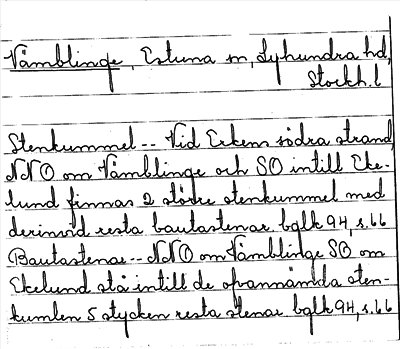 Vämblinge, Estuna sn, Lyhundra hd,
Stockh. l
Stenkummel -- Vid Erkens södra strand
NNO om Vämblinge och SO intill Eke-
lund finnas 2 större stenkummel med
derinvid resta bautastenar. bglk 94, s. 66
Bautastenar -- NNO om Vämblinge SO om
Ekelund stå intill de ofvannämnda sten-
kumlen 5 stycken resta stenar bglk 94, s. 66